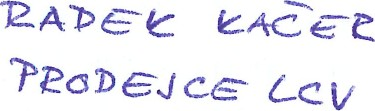 RADEK KAČER
PRODEJCE LCV